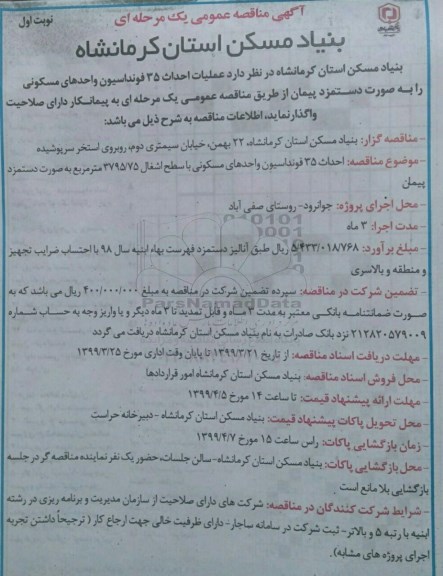 آگهی مناقصه عمومی یک مرحله ای
نوبت اول
بنیاد مسکن استان کرمانشاه
بنیاد مسکن استان کرمانشاه در نظر دارد عملیات احداث ۳۵ فونداسیون واحدهای مسکونی
را به صورت دستمزد پیمان از طریق مناقصه عمومی یک مرحله ای به پیمانکار دارای صلاحیت
واگذار نماید، اطلاعات مناقصه به شرح ذیل می باشد:
- مناقصه گزار: بنیاد مسکن استان کرمانشاه، ۲۲ بهمن، خیابان سیمتری دوم، روبروی استخر سرپوشیده
- موضوع مناقصه: احداث ۳۵ فونداسیون واحدهای مسکونی با سطح اشغال ۳۷۹۵/۷۵ مترمربع به صورت دستمزد
پیمان
- محل اجرای پروژه: جوانرود- روستای صفی آباد
- مدت اجرا: ۳ ماه
- مبلغ برآورد: ۵/۴۳۳/۰۱۸/۷۶۸ ریال طبق آنالیز دستمزد فهرست بهاء ابنیه سال ۹۸ با احتساب ضرایب تجهیز
و منطقه و بالاسری
- تضمین شرکت در مناقصه: سپرده تضمین شرکت در مناقصه به مبلغ ۴۰۰/۰۰۰/۰۰۰ ریال می باشد که به
صورت ضمانتنامه بانکی معتبر به مدت ۳ ماه و قابل تمدید تا ۳ ماه دیگر و یا واریز وجه به حساب شماره
۲۱۲۸۲۰۵۷۹۰۰۹ نزد بانک صادرات به نام بنیاد مسکن استان کرمانشاه دریافت می گردد
- مهلت دریافت اسناد مناقصه: از تاریخ ۱۳۹۹/۳/۲۱ تا پایان وقت اداری مورخ ۱۳۹۹/۳/۲۵
- محل فروش اسناد مناقصه: بنیاد مسکن استان کرمانشاه امور قراردادها
- مهلت ارائه پیشنهاد قیمت: تا ساعت ۱۴ مورخ ۱۳۹۹/۴/۵
- محل تحویل پاکات پیشنهاد قیمت: بنیاد مسکن استان کرمانشاه -دبیرخانه حراست
- زمان بازگشایی پاکات: راس ساعت ۱۵ مورخ ۱۳۹۹/۴/۷
- محل بازگشایی پاکات: بنیاد مسکن استان کرمانشاه-سالن جلسات، حضور یک نفر نماینده مناقصه گر در جلسه
بازگشایی بلا مانع است
- شرایط شرکت کنندگان در مناقصه: شرکت های دارای صلاحیت از سازمان مدیریت و برنامه ریزی در رشته
ابنیه با رتبه ۵ و بالاتر- ثبت شرکت در سامانه ساجار- دارای ظرفیت خالی جهت ارجاع کار ( ترجیحاً داشتن تجربه
اجرای پروژه های مشابه).
ParsNamadData